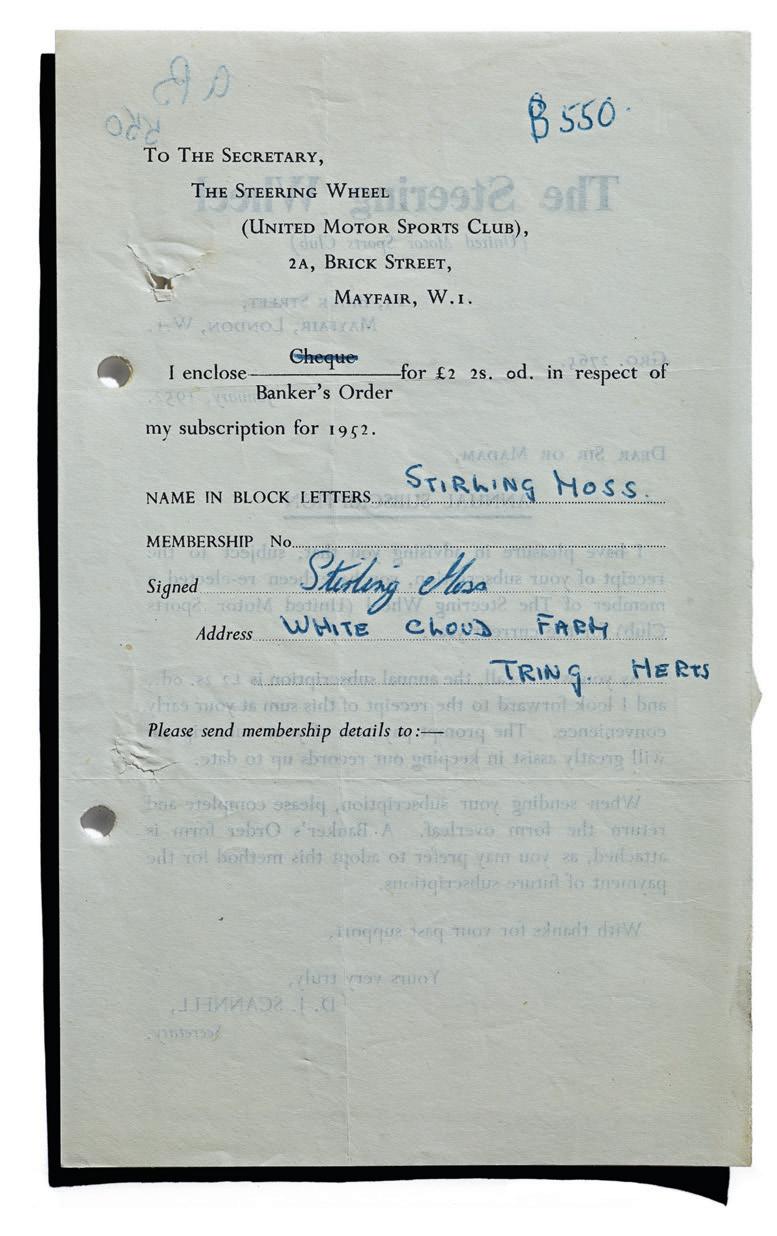 B 550.
To The Secretary,
The Steering Wheel
(United Motor Sports Club),
2A, Brick Street,
Mayfair, W.1.
Cheque
I enclose for £2 2s. 0d. in respect of
Banker's Order
my subscription for 1952.
NAME IN BLOCK LETTERS STIRLING MOSS.
MEMBERSHIP No.
Signed Stirling Moss
Address WHITE CLOUD FARM
TRING. HERTS
Please send membership details to:—